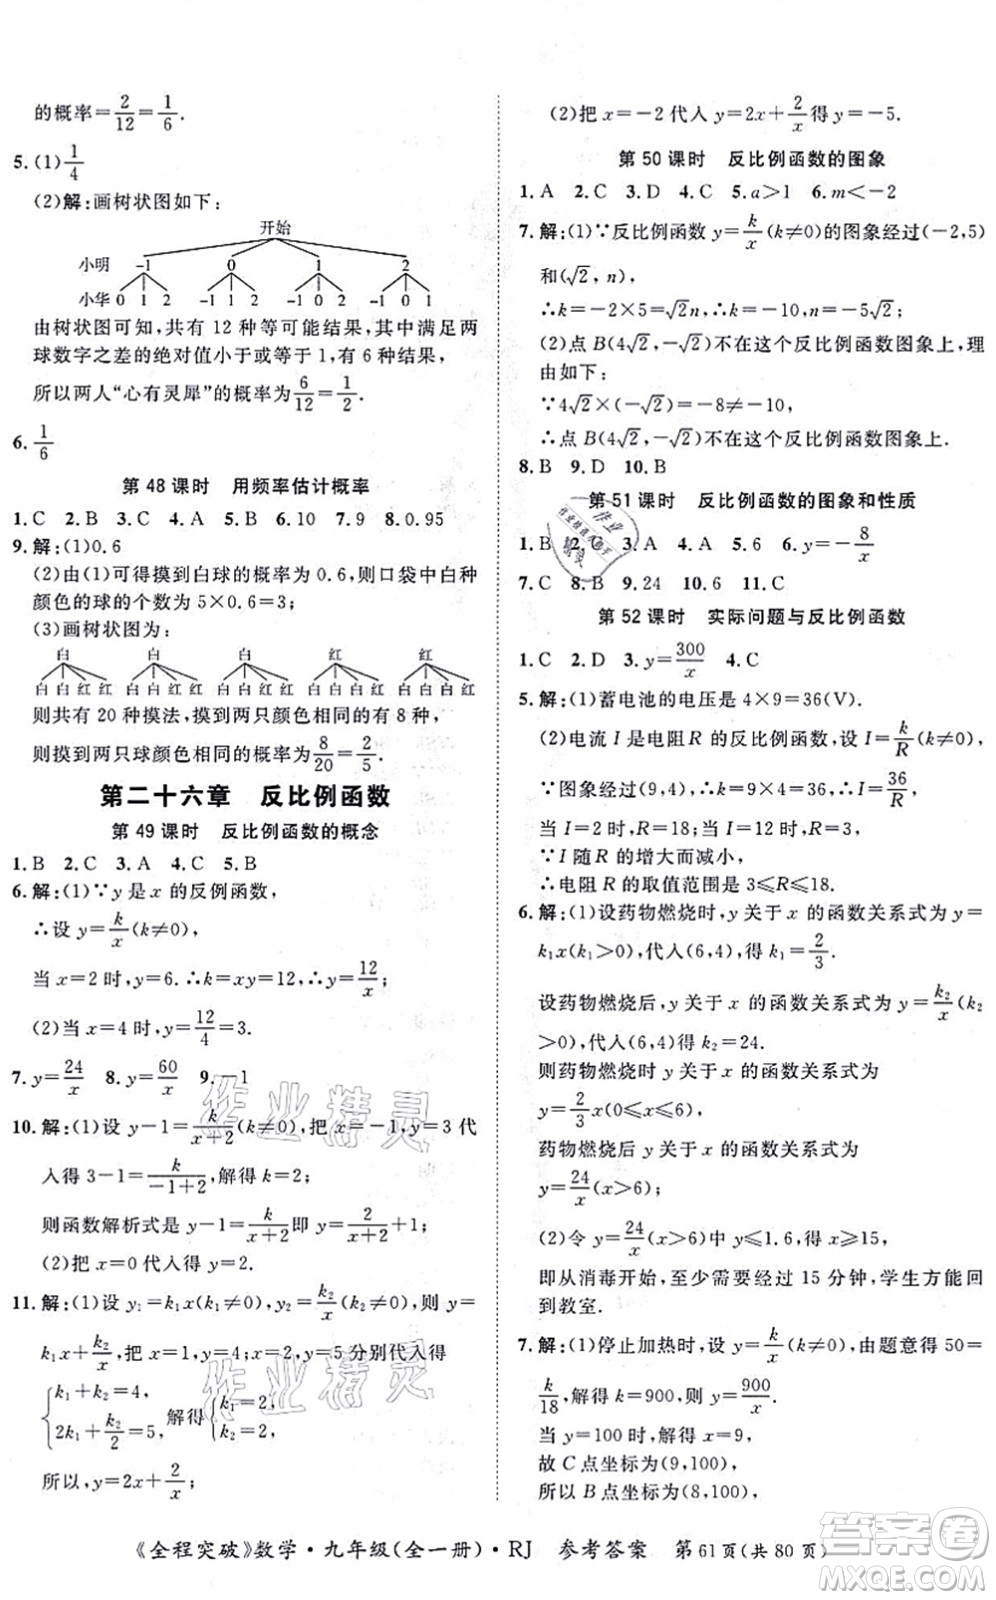 的概率=2/12=1/6.
5.(1)1/4
(2)解:画树状图如下:
开始
小明 -1 0 1 2
小华 0 1 2 -1 1 2 -1 0 2 -1 0 1
由树状图可知,共有 12 种等可能结果,其中满足两
球数字之差的绝对值小于或等于 1,有 6 种结果,
所以两人“心有灵犀”的概率=6/12=1/2.
6.1/6
第 48 课时 用频率估计概率
1.C 2.B 3.C 4.A 5.B 6.10 7.9 8.0.95
9.解:(1)0.6
(2)由(1)可得摸到白球的概率为 0.6,则口袋中白种
颜色的球的个数为 5×0.6=3;
(3)画树状图为:
白 白 白 红 红
白白红红 白白红红 白白红红 白白白红 白白白红
则共有 20 种摸法,摸到两只颜色相同的有 8 种,
则摸到两只球颜色相同的概率=8/20=2/5.
第二十六章 反比例函数
第 49 课时 反比例函数的概念
1.B 2.C 3.A 4.C 5.B
6.解:(1)∵y 是 x 的反例函数,
∴设 y=k/x(k≠0),
当 x=2 时,y=6.∴k=xy=12,∴y=12/x.
(2)当 x=4 时,y=12/4=3.
7.y=24/x 8.y=60/x 9.-1
10.解:(1)设 y-1=k/(x+2)(k≠0),把 x=-1,y=3 代
入得 3-1=k/(-1+2),解得 k=2,
则函数解析式是 y-1=k/(x+2)即 y=2/(x+2)+1;
(2)把 x=0 代入得 y=2.
11.解:(1)设 y₁=k₁x(k₁≠0),y=k₂/x(k₂≠0),则 y=
k₁x+k₂/x;把 x=1,y=4,x=2,y=5 分别代入得
{k₁+k₂=4, 2k₁+k₂/2=5, 解得{k₁=2, k₂=2,
所以 y=2x+2/x;
(2)把 x=-2 代入 y=2x+2/x得 y=-5.
第 50 课时 反比例函数的图象
1.A 2.C 3.D 4.C 5.a>1 6.m<-2
7.解:(1)∵反比例函数 y=k/x(k≠0)的图象经过(-2,5)
和(√2,n),
∴k=-2×5=√2n,∴k=-10,n=-5√2.
(2)点 B(4√2,-√2)不在这个反比例函数图象上,理
由如下:
∵4√2×(-√2)=-8≠-10,
∴点 B(4√2,-√2)不在这个反比例函数图象上.
8.B 9.D 10.B
第 51 课时 反比例函数的图象和性质
1.B 2.C 3.A 4.A 5.6 6.y=-8/x
7.C 8.B 9.24 10.6 11.C
第 52 课时 实际问题与反比例函数
1.C 2.D 3.y=300/x 4.C
5.解:(1)蓄电池的电压是 4×9=36(V).
(2)电流 I 是电阻 R 的反比例函数,设 I=k/R(k≠0),
∵图象经过(9,4),∴k=4×9=36,∴I=36/R,
当 I=2 时,R=18;当 I=12 时,R=3,
∵I 随 R 的增大而减小,
∴电阻 R 的取值范围是 3≤R≤18.
6.解:(1)设药物燃烧时,y 关于 x 的函数关系式为 y=
k₁x(k₁>0),代入(6,4),得 k₁=2/3.
设药物燃烧后,y 关于 x 的函数关系式为 y=k₂/x(k₂
>0),代入(6,4)得 k₂=24.
则药物燃烧时 y 关于 x 的函数关系式为
y=2/3x(0≤x≤6);
药物燃烧后 y 关于 x 的函数关系式为
y=24/x(x>6);
(2)令 y=24/x中 y≤1.6,得 x≥15,
即从消毒开始,至少需要经过 15 分钟,学生方能回
到教室.
7.解:(1)停止加热时,设 y=k/x(k≠0),由题意得 50=
k/18,解得 k=900,则 y=900/x.
当 y=100 时,解得 x=9,
故 C 点坐标为(9,100),
所以 B 点坐标为(8,100),
《全程突破》数学·九年级(全一册)·RJ 参考答案 第61页(共 80 页)
作业精灵
作业精灵
答案圈
MXQE.COM